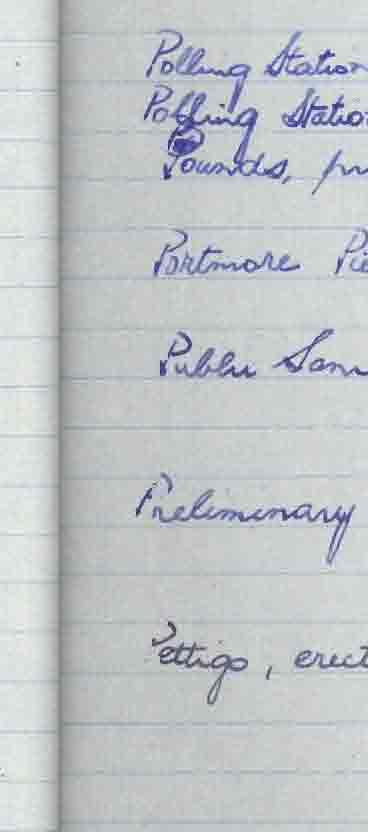 Polling Station
Polling Statio
Pounds, pr
Portmore Pie
Public San
Preliminary
Pettigo, erect